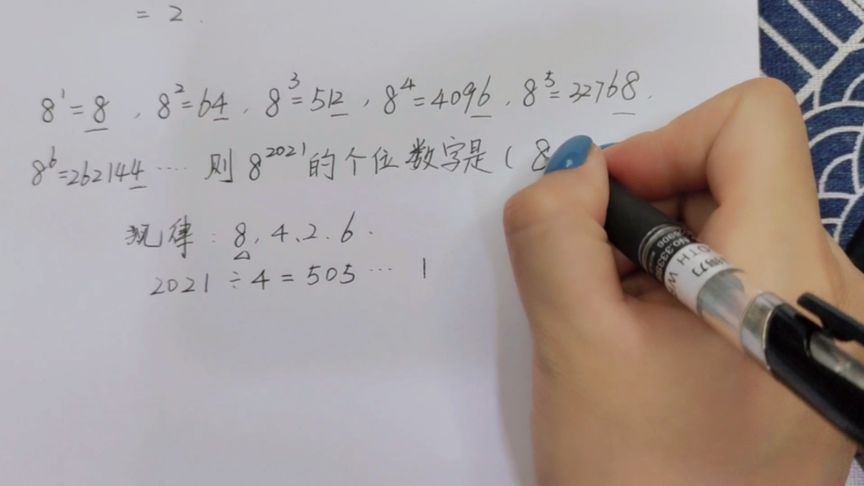 = 2.
8¹=8, 8²=64, 8³=512, 8⁴=4096, 8⁵=32768.
8⁶=262144 ···· 则 8²⁰²¹的个位数字是( 8
规律: 8, 4、2、6.
2021 ÷ 4 = 505 ··· 1